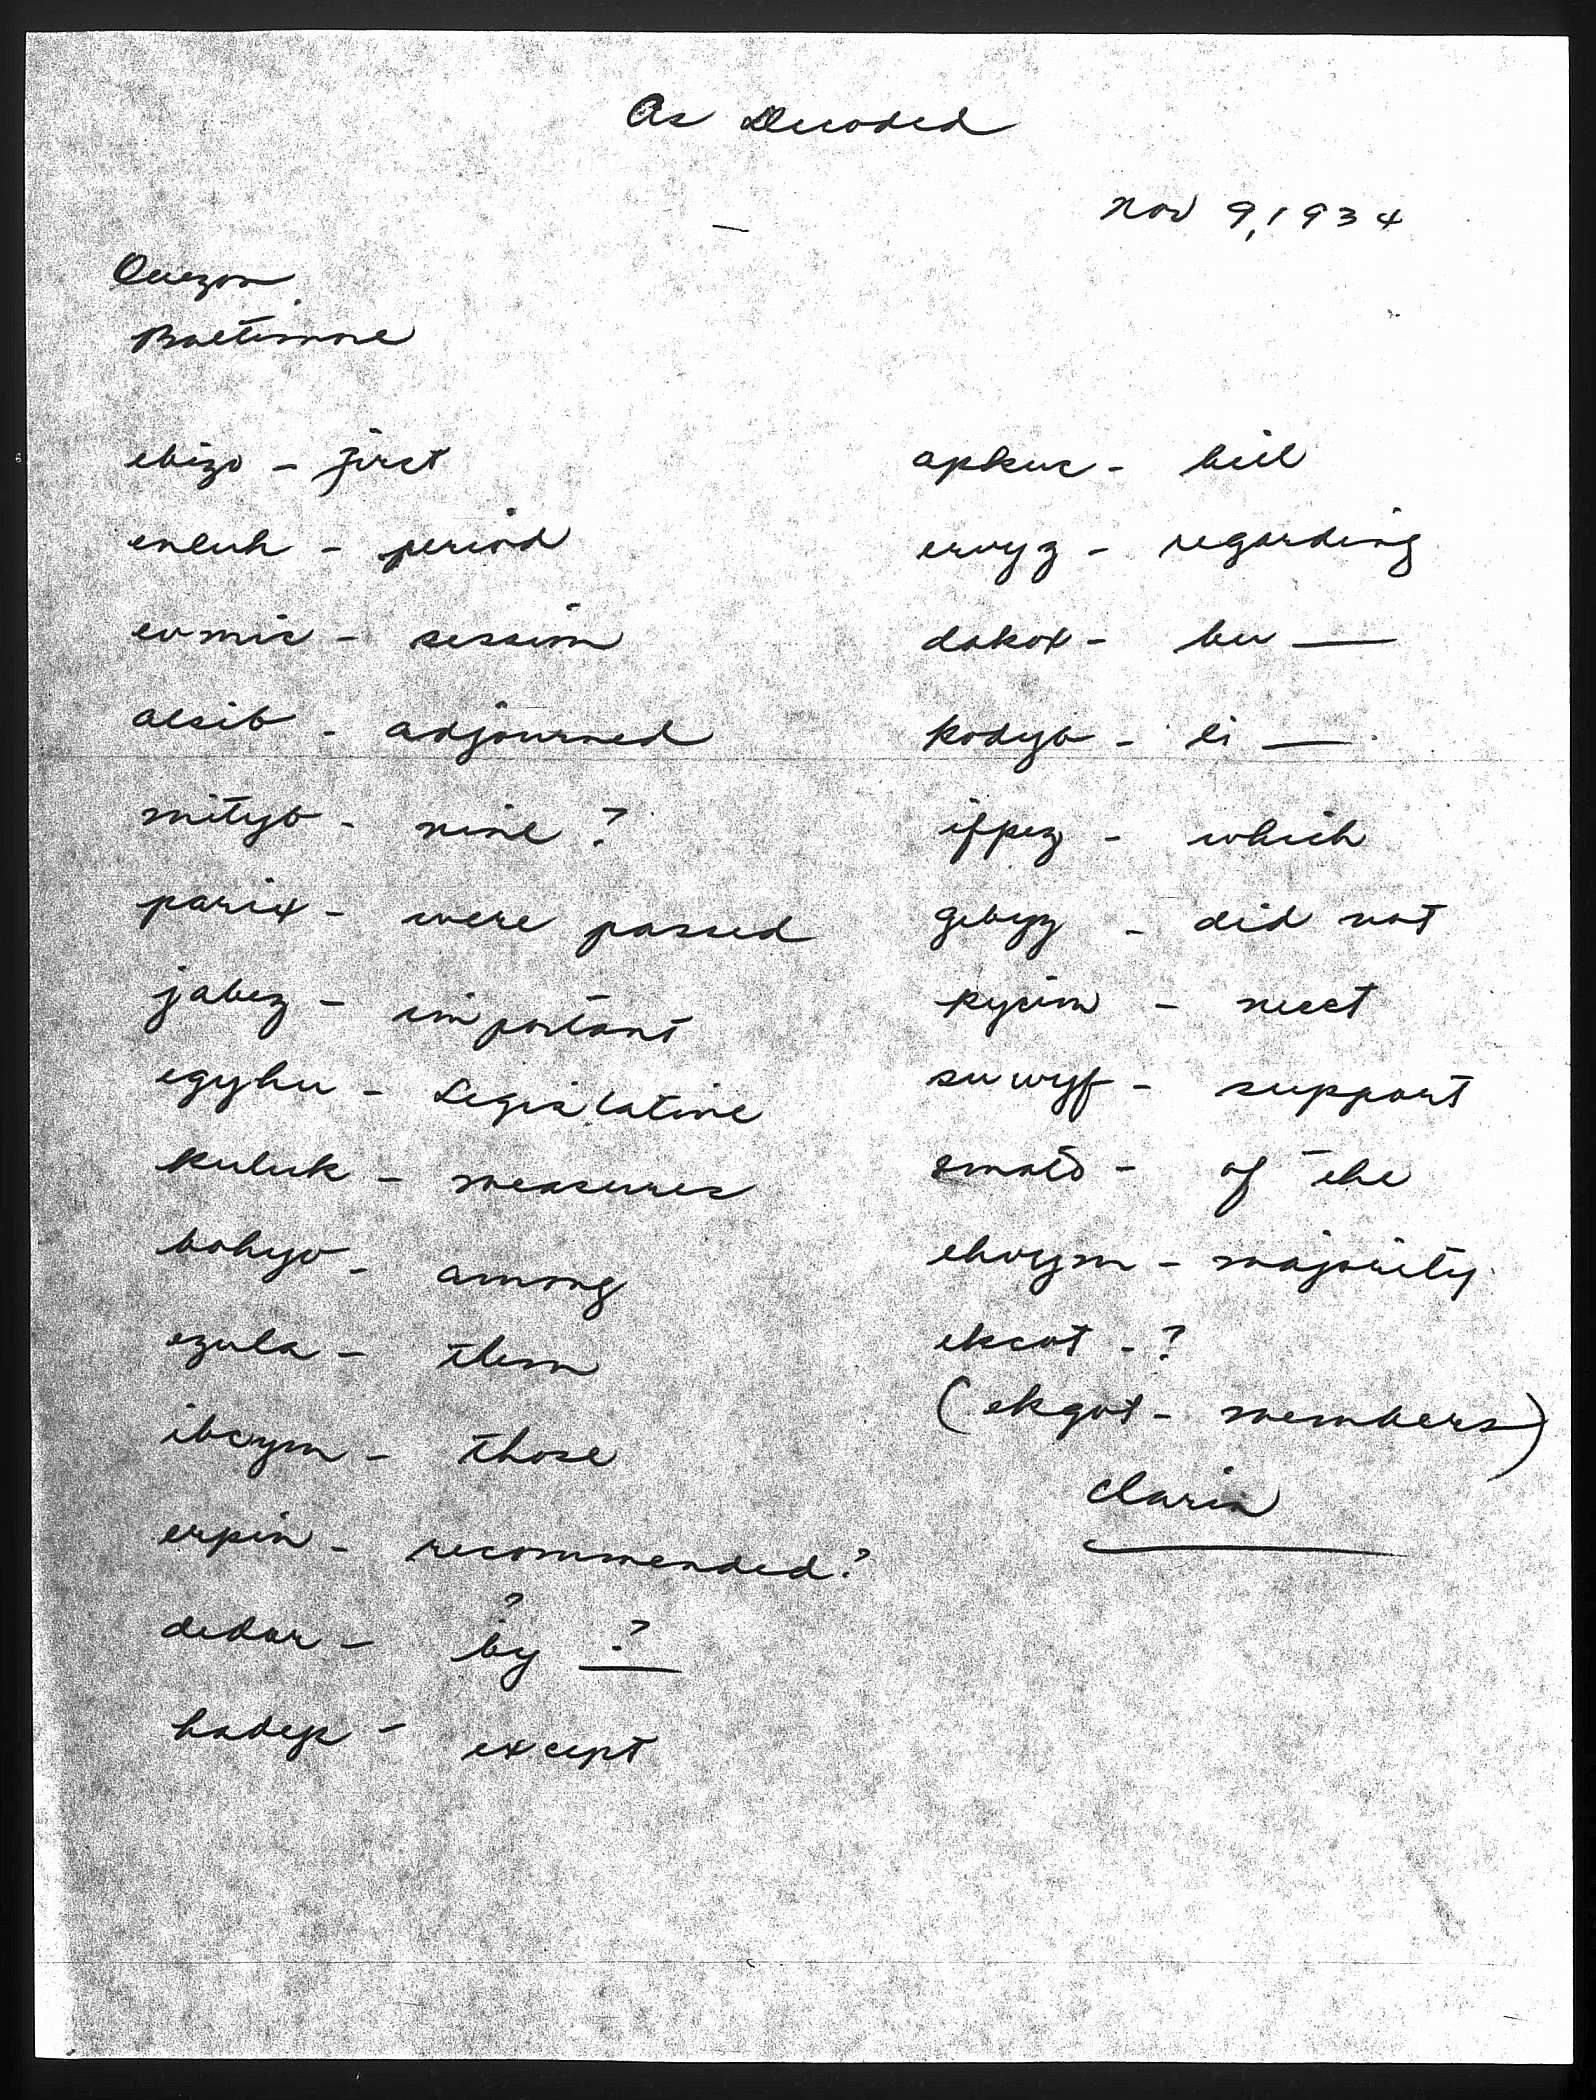 As Decoded
Nov 9, 1934
Quezon
Baltimore
ebizo - first
enluh - period
evmis - session
alsib - adjourned
mityb - nine ?
parix - were passed
jabez - important
egyhu - Legislative
kuluk - measures
bohyo - among
ezula - them
ibcym - those
erpin - recommended?
dedar - by ? ?
hadep - except
apkuc - bill
ervyz - regarding
dakox - bu —
kodyb - li —
ifpez - which
gebyz - did not
kycim - meet
suwyf - support
omato - of the
ehvym - majority
ekcot - ?
(ekgot - members)
Clarin